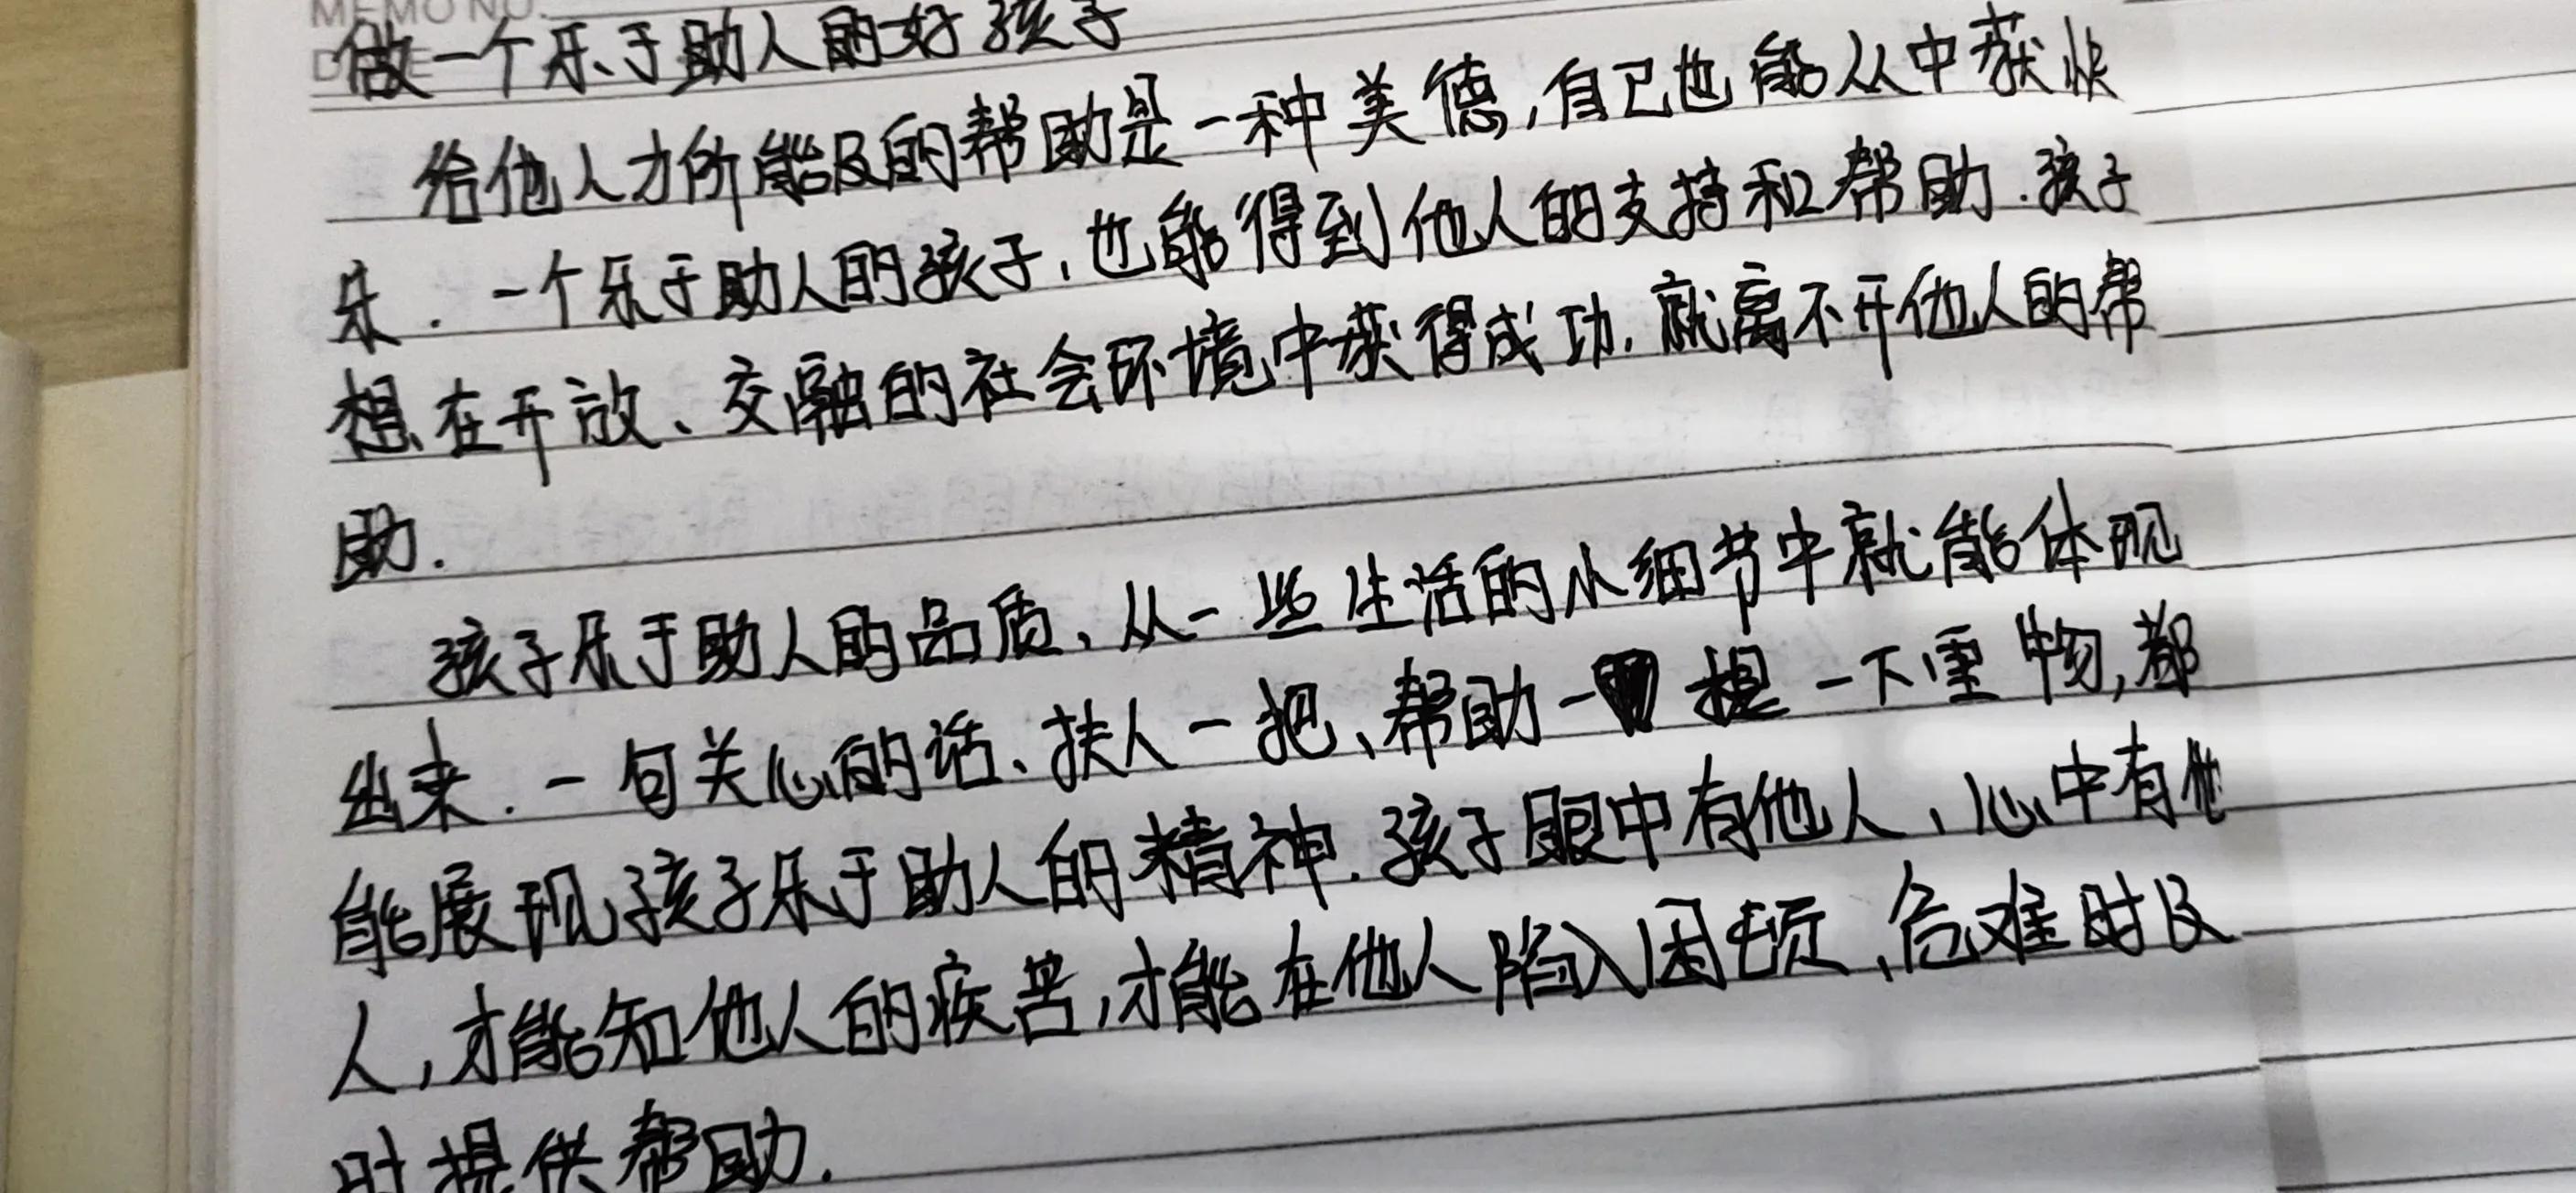 MEMO NO.
做一个乐于助人的好孩子
给他人力所能及的帮助是一种美德,自己也能从中获快
乐.一个乐于助人的孩子,也能得到他人的支持和帮助.孩子
想在开放、交融的社会环境中获得成功,就离不开他人的帮
助.
孩子乐于助人的品质、从一些生活的小细节中就能体现
出来.一句关心的话、扶人一把、帮助一 提一下重物,都
能展现孩子乐于助人的精神.孩子眼中有他人、心中有他
人,才能知他人的疾苦,才能在他人陷入困顿、危难时及
时提供帮助.